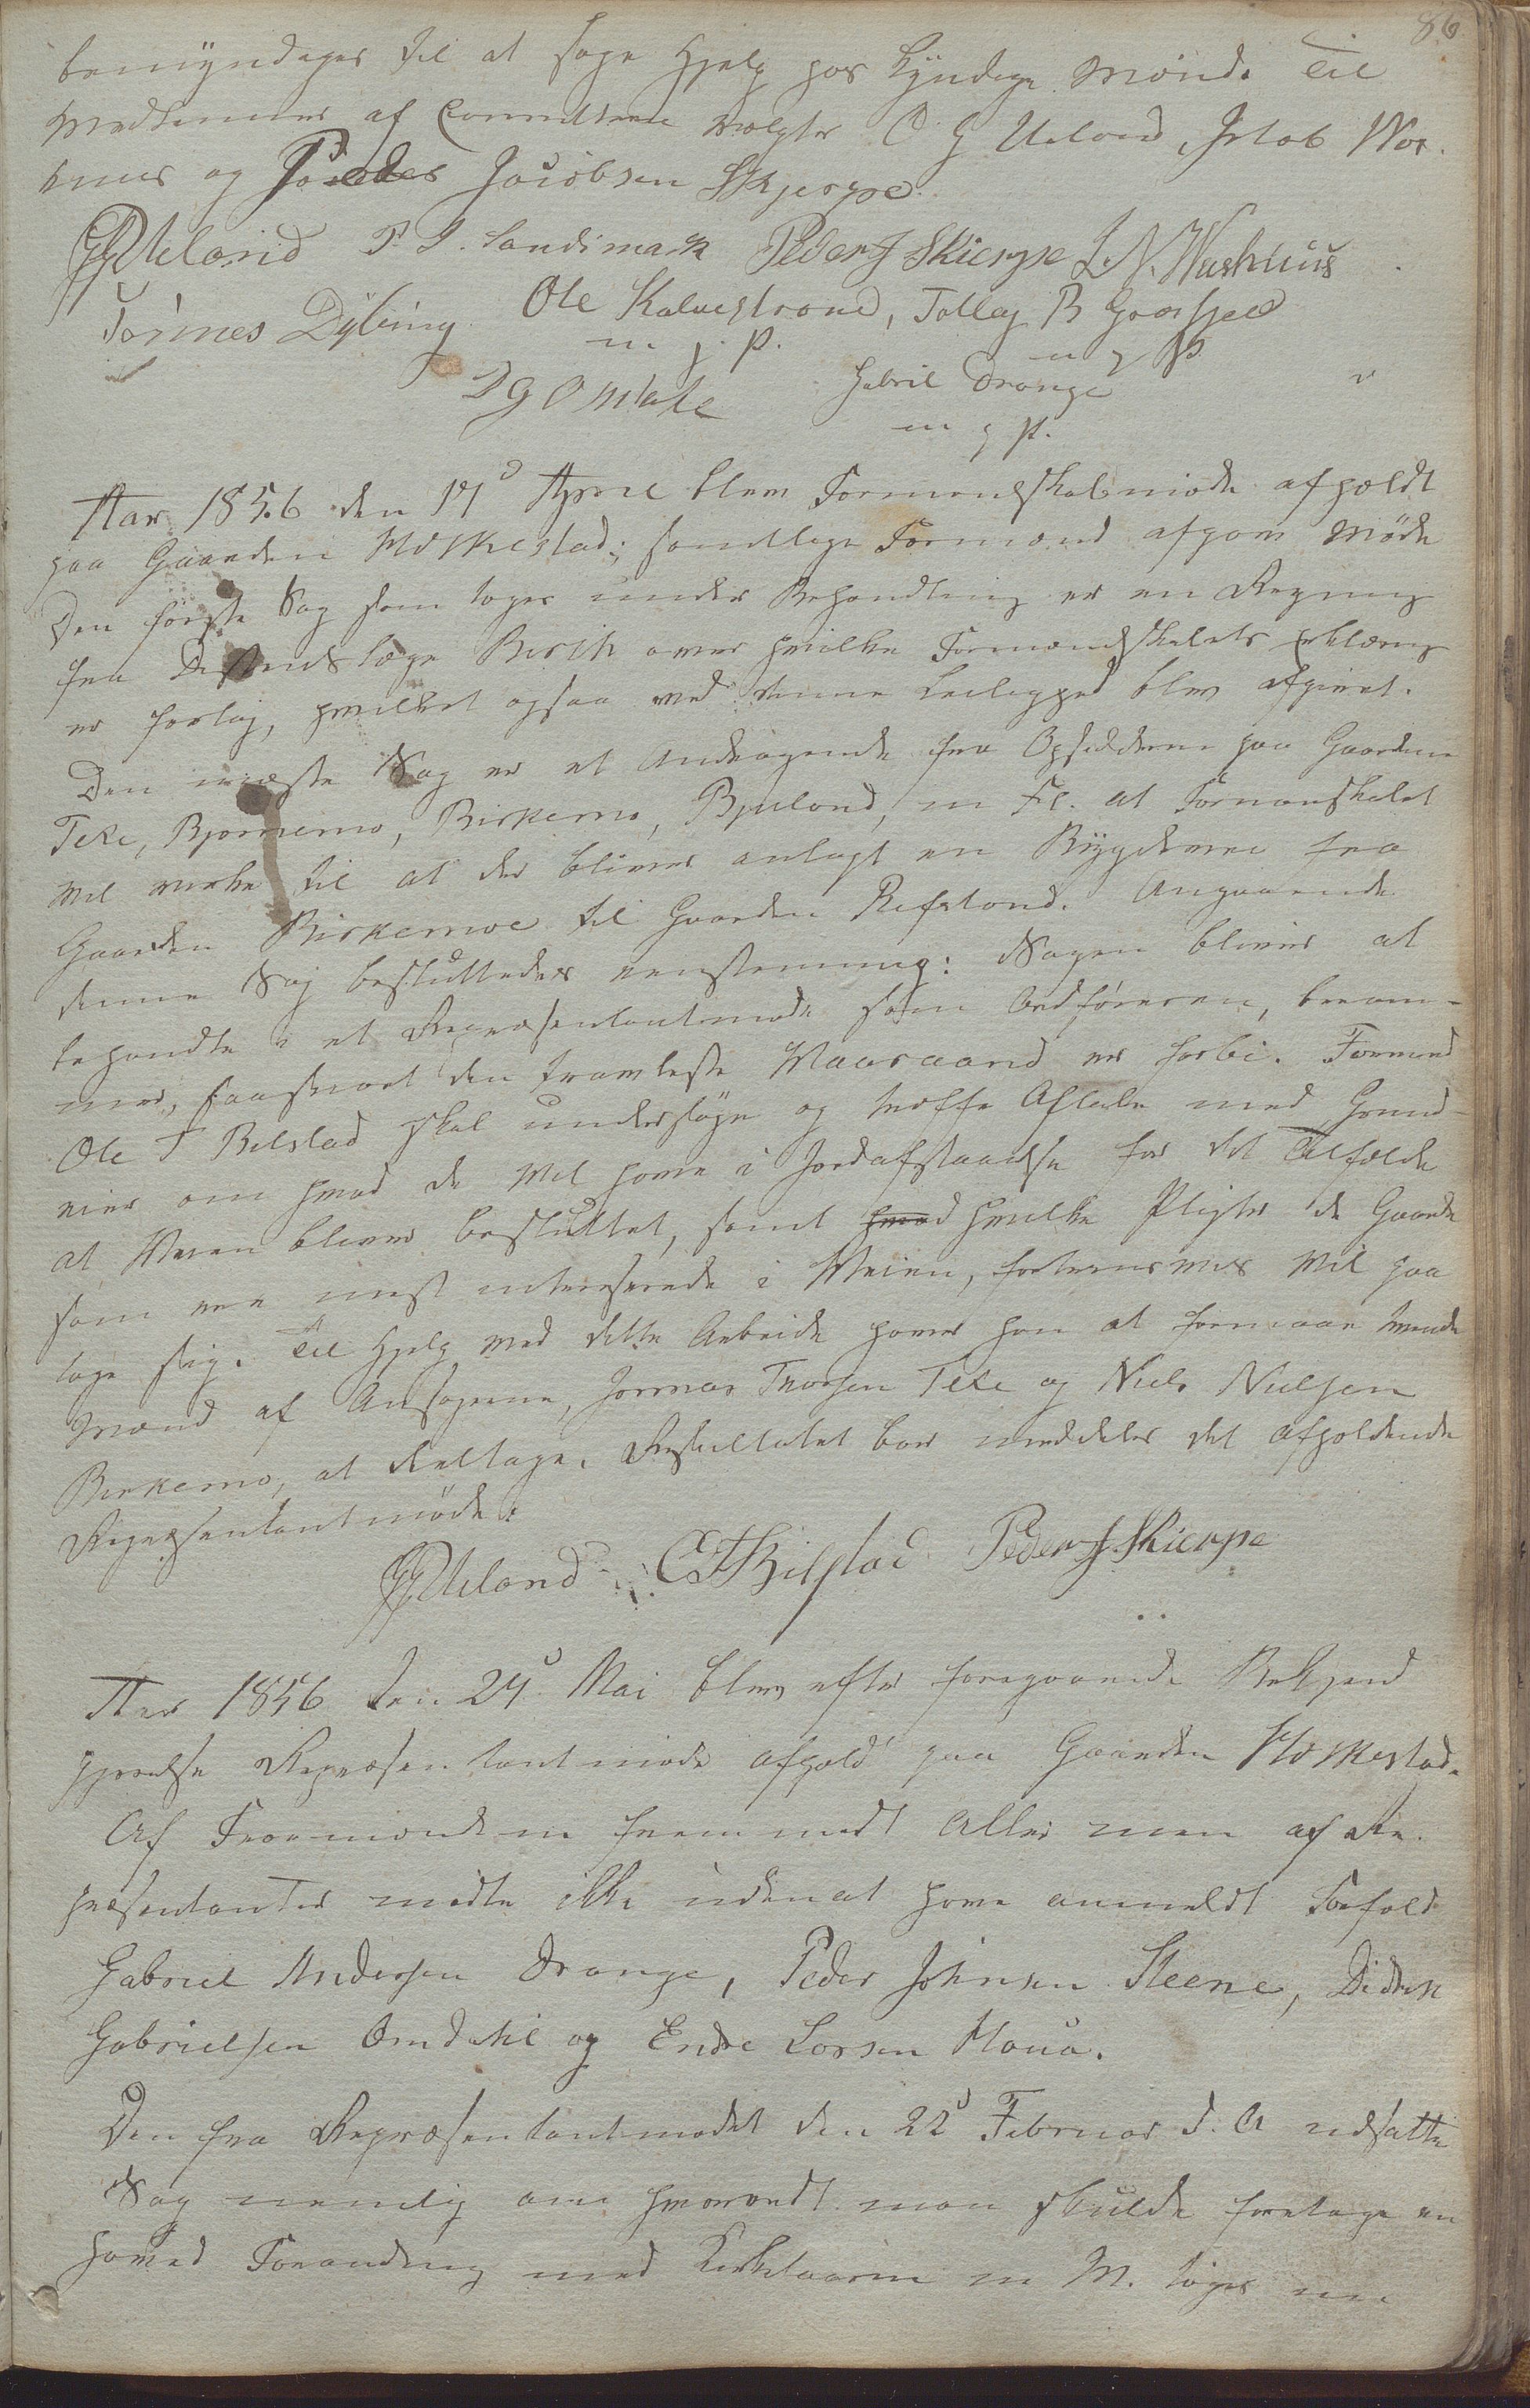 86
bemyndiges til at søge Hjelp hos kyndige Mænd. Til
Medlemmer af Committeen valgtes O G Ueland, Jakob
og Peder Jacobsen Skjerpe.
OGUeland P. J. Landimark Peder J Skierpe
Tönnes Dybing Ole Kalvestrand, Tollag B Graasjeed
m. p. P. m p P
D G Omdahl Gabril Drange
m p P.
Aar 1856 den 17d April blev Formandskabsmøde afholdt
paa Gaarden Moskestad; samtlige Formænd afgav Møde
Den første Sag som toges under Behandling er en Regning
fra Distriktslæge Birch over hvilken Formandskabets Erklæring
er forlagt, hvilket ogsaa ved denne Leilighed blev afgivet.
Den næste Sag er et Andragende fra Opsidderne paa Gaardene
Teke, Bjornemo, Birkemo, Bjuland, m Fl. at Formanskabet
vil virke til at der bliver anlagt en Bygdevei fra
Gaarden Birkemoe til Gaarden Refsland. Angaaende
denne Sag besluttedes eenstemmig: Sagen bliver at
behandle i et Repræsentantmøde som Ordføreren, beram-
mer, saasnart den travleste Vaaraand er forbi. Formand
Ole T Bilstad skal undersøge og træffe Aftale med Grund-
eier om hvad de vil have i Jordafstaaelse for det Tilfælde
at Veien bliver besluttet, samt hvad hvilke Pligter de Gaarde
som ere mest interesserede i Veien, fortrinsviis vil paa
tage sig. Til Hjelp med dette Arbeide haver han at formaae tvende
Mænd af Ansøgerne, Jonnas Thorsen Teke og Niels Nielsen
Birkemo, at deeltage. Resultatet bør meddeles det afholdende
Repræsentantmøde.
OGUeland OTBilstad Peder J. Skierpe
Aar 1856 den 24d Mai blev efter foregaaende Bekjend
gjørelse Repræsentantmøde afhold paa Gaarden Moskestad.
Af Formændene fremmødt Alle men af Re-
præsentanter mødte ikke uden at have anmeldt Forfald
Gabriel Andersen Drange, Peder Johnsen Steene, Didrik
Gabrielsen Omdahl og Endre Larsen Haua.
Den fra Repræsentantmødet den 22d Februar d. A udsatte
Sag nemlig om hvorvidt man skulde foretage en
Forandring med Kirketaarnet m M. toges nu